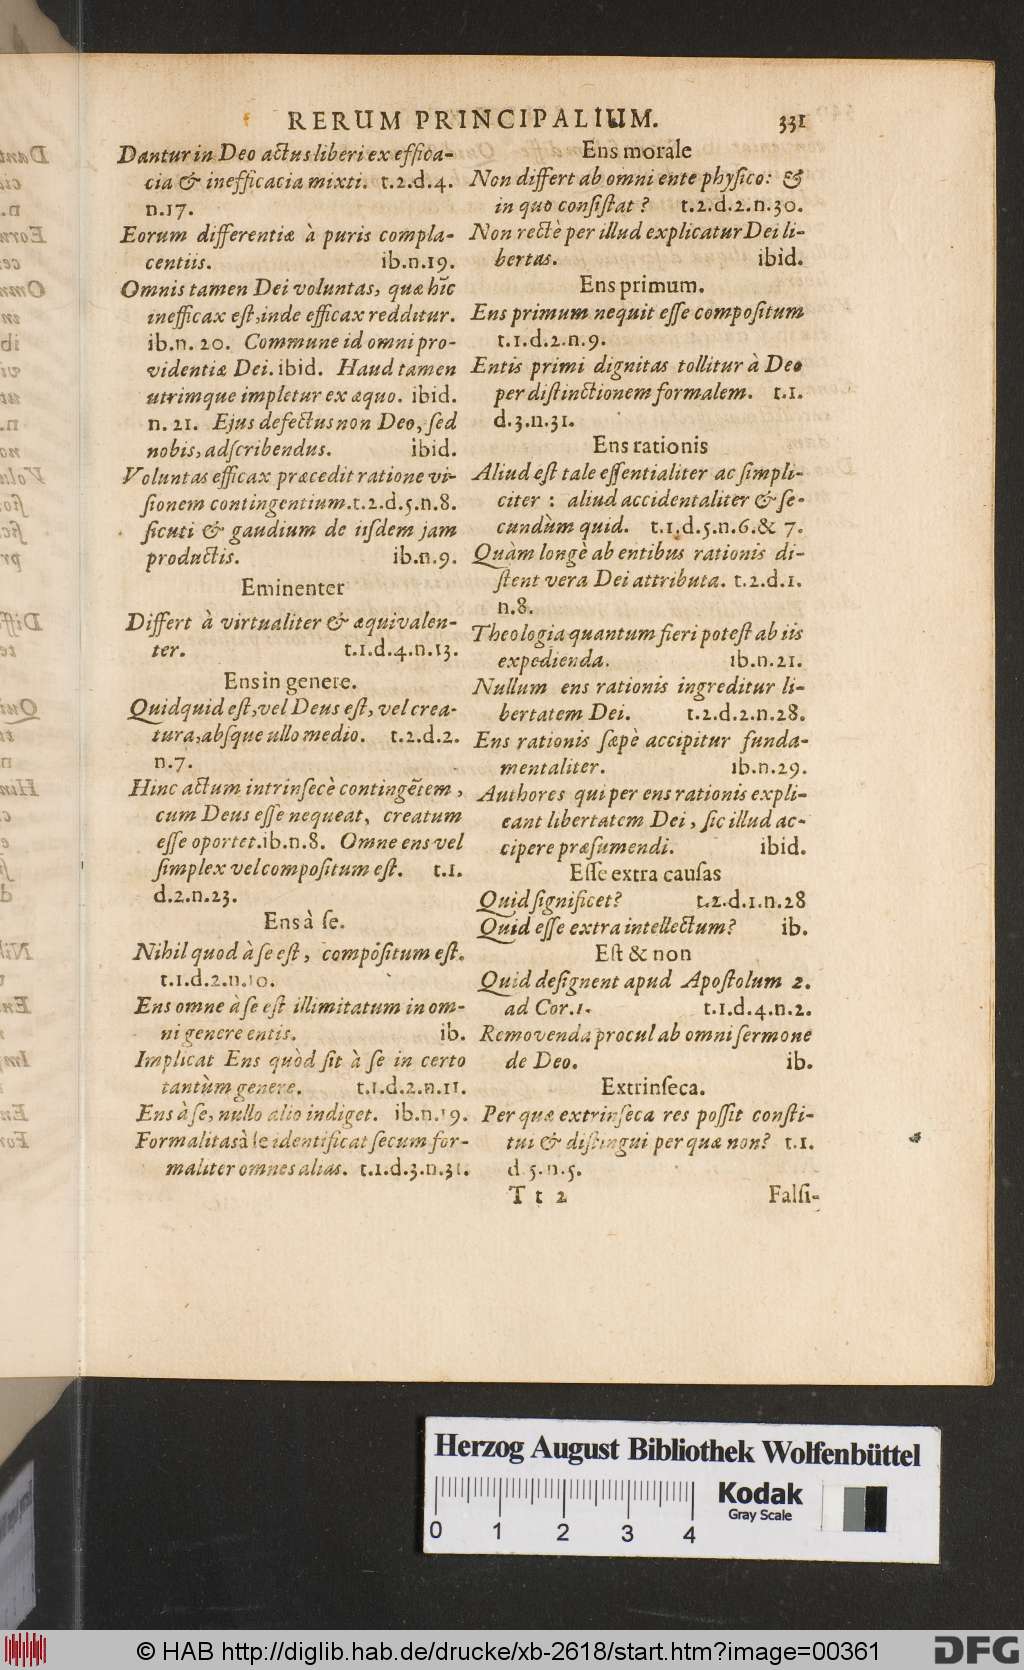 RERUM PRINCIPALIUM. 331
Dantur in Deo actus liberi ex effica-
cia & inefficacia mixti. t.2.d.4.
n.17.
Eorum differentiæ à puris compla-
centiis. ib.n.19.
Omnis tamen Dei voluntas, quæ hîc
inefficax eſt, inde efficax redditur.
ib.n. 20. Commune id omni pro-
videntiæ Dei. ibid. Haud tamen
utrimque impletur ex æquo. ibid.
n. 21. Ejus defectus non Deo, ſed
nobis, adſcribendus. ibid.
Voluntas efficax præcedit ratione vi-
ſionem contingentium. t.2.d.5.n.8.
ſicuti & gaudium de iiſdem jam
productis. ib.n.9.
Eminenter
Differt à virtualiter & æquivalen-
ter. t.1.d.4.n.13.
Ens in genere.
Quidquid eſt, vel Deus eſt, vel crea-
tura, abſque ullo medio. t.2.d.2.
n.7.
Hinc actum intrinſecè contingētem,
cum Deus eſſe nequeat, creatum
eſſe oportet. ib.n.8. Omne ens vel
ſimplex vel compoſitum eſt. t.1.
d.2.n.23.
Ens à ſe.
Nihil quod à ſe eſt, compoſitum eſt.
t.1.d.2.n.10.
Ens omne à ſe eſt illimitatum in om-
ni genere entis. ib.
Implicat Ens quòd ſit à ſe in certo
tantùm genere. t.1.d.2.n.11.
Ens à ſe, nullo alio indiget. ib.n.19.
Formalitas à ſe identificat ſecum for-
maliter omnes alias. t.1.d.3.n.31.
Ens morale
Non differt ab omni ente phyſico: &
in quo conſiſtat? t.2.d.2.n.30.
Non rectè per illud explicatur Dei li-
bertas. ibid.
Ens primum.
Ens primum nequit eſſe compoſitum
t.1.d.2.n.9.
Entis primi dignitas tollitur à Deo
per diſtinctionem formalem. t.1.
d.3.n.31.
Ens rationis
Aliud eſt tale eſſentialiter ac ſimpli-
citer : aliud accidentaliter & ſe-
cundùm quid. t.1.d.5.n.6.& 7.
Quàm longè ab entibus rationis di-
ſtent vera Dei attributa. t.2.d.1.
n.8.
Theologia quantum fieri poteſt ab iis
expedienda. ib.n.21.
Nullum ens rationis ingreditur li-
bertatem Dei. t.2.d.2.n.28.
Ens rationis ſæpè accipitur funda-
mentaliter. ib.n.29.
Authores qui per ens rationis expli-
cant libertatem Dei, ſic illud ac-
cipere præſumendi. ibid.
Eſſe extra cauſas
Quid ſignificet? t.2.d.1.n.28
Quid eſſe extra intellectum? ib.
Eſt & non
Quid deſignent apud Apoſtolum 2.
ad Cor.1. t.1.d.4.n.2.
Removenda procul ab omni ſermone
de Deo. ib.
Extrinſeca.
Per quæ extrinſeca res poſſit conſti-
tui & diſtingui per quæ non? t.1.
d.5.n.5.
T t 2 Falſi-
Herzog August Bibliothek Wolfenbüttel
0 1 2 3 4
Kodak
Gray Scale
© HAB http://diglib.hab.de/drucke/xb-2618/start.htm?image=00361
DFG